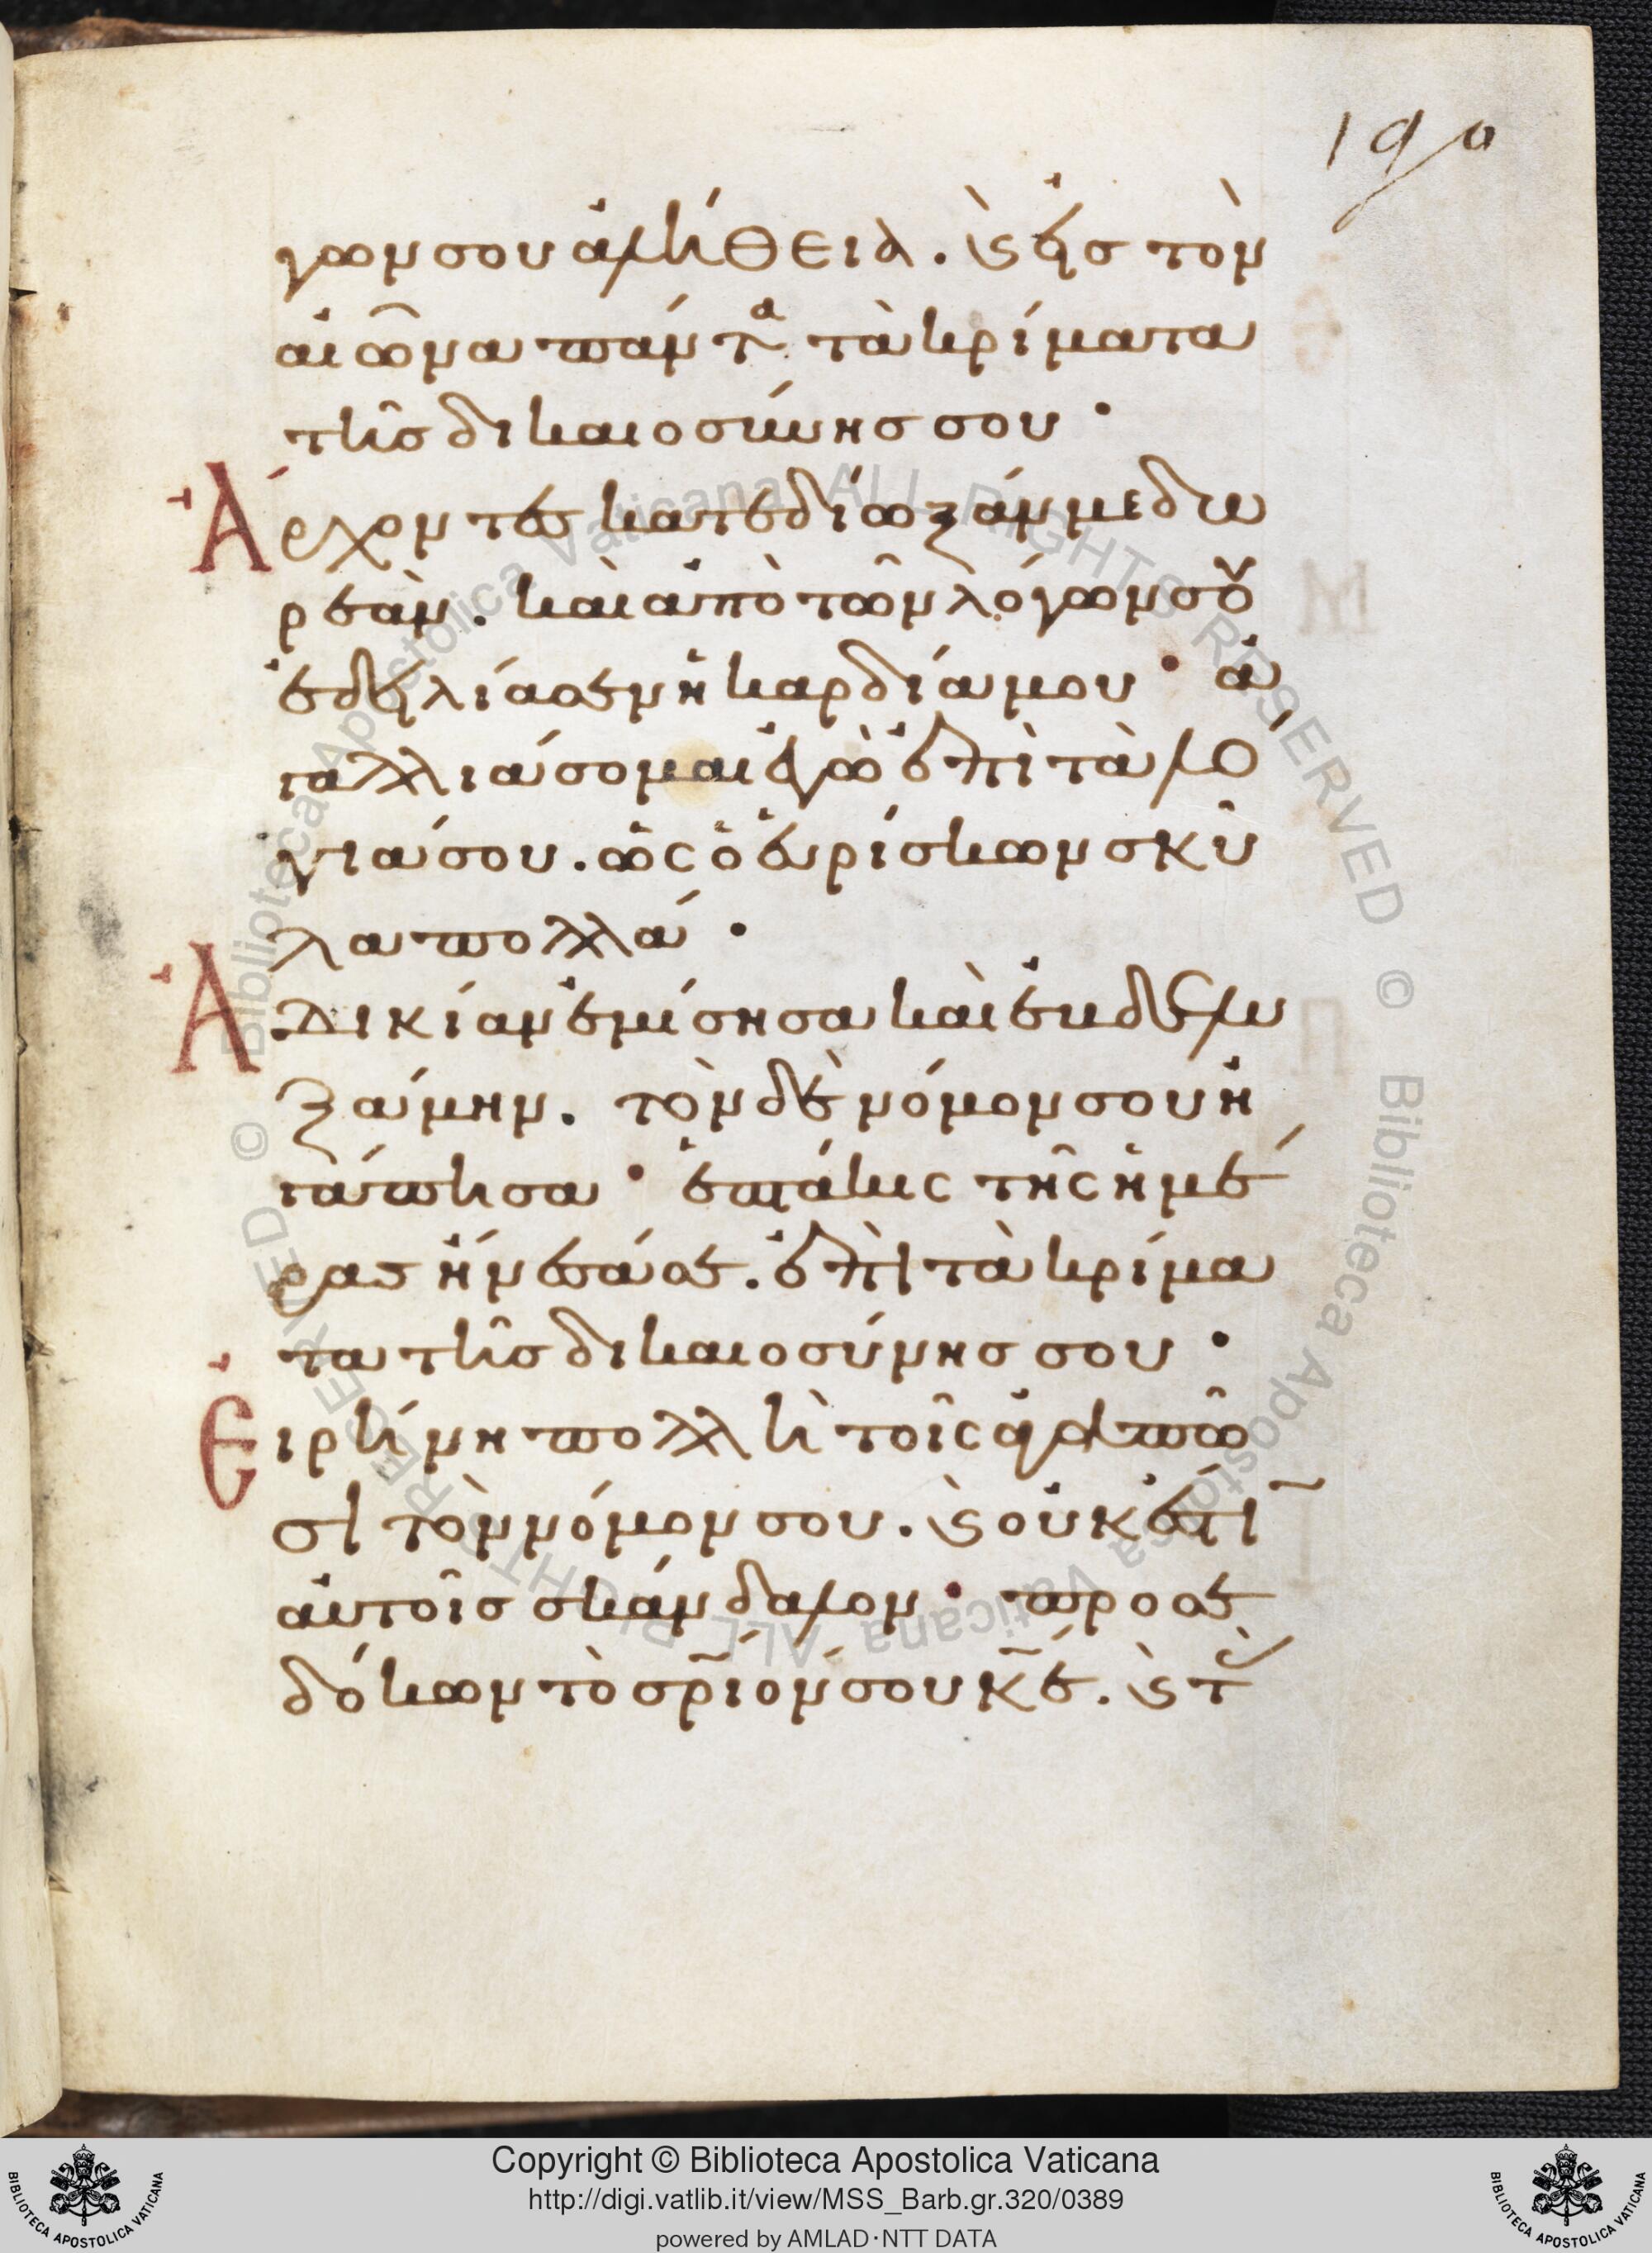 190
γων σου ἀλήθεια. ϗ εἰς τὸν
αἰῶνα πάντα τὰ κρίματα
τῆς δικαιοσύνης σου·
Ἄρχοντες κατεδίωξάν με δω
ρεάν. καὶ ἀπὸ τῶν λόγων σου
ἐδειλίασεν ἡ καρδία μου· ἀ
γαλλιάσομαι ἐγὼ ἐπὶ τὰ λό
γιά σου. ὡς ὁ εὑρίσκων σκῦ
λα πολλά·
Ἀδικίαν ἐμίσησα καὶ ἐβδελυ
ξάμην. τὸν δὲ νόμον σου ἠ
γάπησα· ἑπτάκις τῆς ἡμέ
ρας ᾔνεσά σε. ἐπὶ τὰ κρίμα
τα τῆς δικαιοσύνης σου·
Εἰρήνη πολλὴ τοῖς ἀγαπῶ
σι τὸν νόμον σου. ϗ οὐκ ἔστι
αὐτοῖς σκάνδαλον· προσε
δόκων τὸ σρ̅ιόν σου κ̅ε. ϗ τ
Copyright © Biblioteca Apostolica Vaticana
http://digi.vatlib.it/view/MSS_Barb.gr.320/0389
powered by AMLAD·NTT DATA
BIBLIOTECA APOSTOLICA VATICANA
BIBLIOTECA APOSTOLICA VATICANA
© Biblioteca Apostolica Vaticana ALL RIGHTS RESERVED © Biblioteca Apostolica Vaticana ALL RIGHTS RESERVED